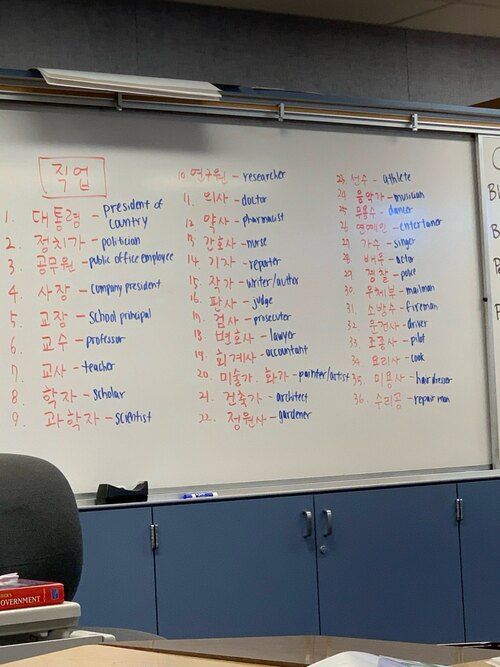 직업
1. 대통령 - president of country
2. 정치가 - politician
3. 공무원 - public office employee
4. 사장 - company president
5. 교장 - school principal
6. 교수 - professor
7. 교사 - teacher
8. 학자 - scholar
9. 과학자 - scientist
10. 연구원 - researcher
11. 의사 - doctor
12. 약사 - pharmacist
13. 간호사 - nurse
14. 기자 - reporter
15. 작가 - writer/author
16. 판사 - judge
17. 검사 - prosecuter
18. 변호사 - lawyer
19. 회계사 - accountant
20. 미술가. 화가 - painter/artist
21. 건축가 - architect
22. 정원사 - gardener
23. 선수 - athlete
24. 음악가 - musician
25. 무용수 - dancer
26. 연예인 - entertainer
27. 가수 - singer
28. 배우 - actor
29. 경찰 - police
30. 우체부 - mailman
31. 소방수 - fireman
32. 운전사 - driver
33. 조종사 - pilot
34. 요리사 - cook
35. 미용사 - hairdresser
36. 수리공 - repair man
OVERNMENT